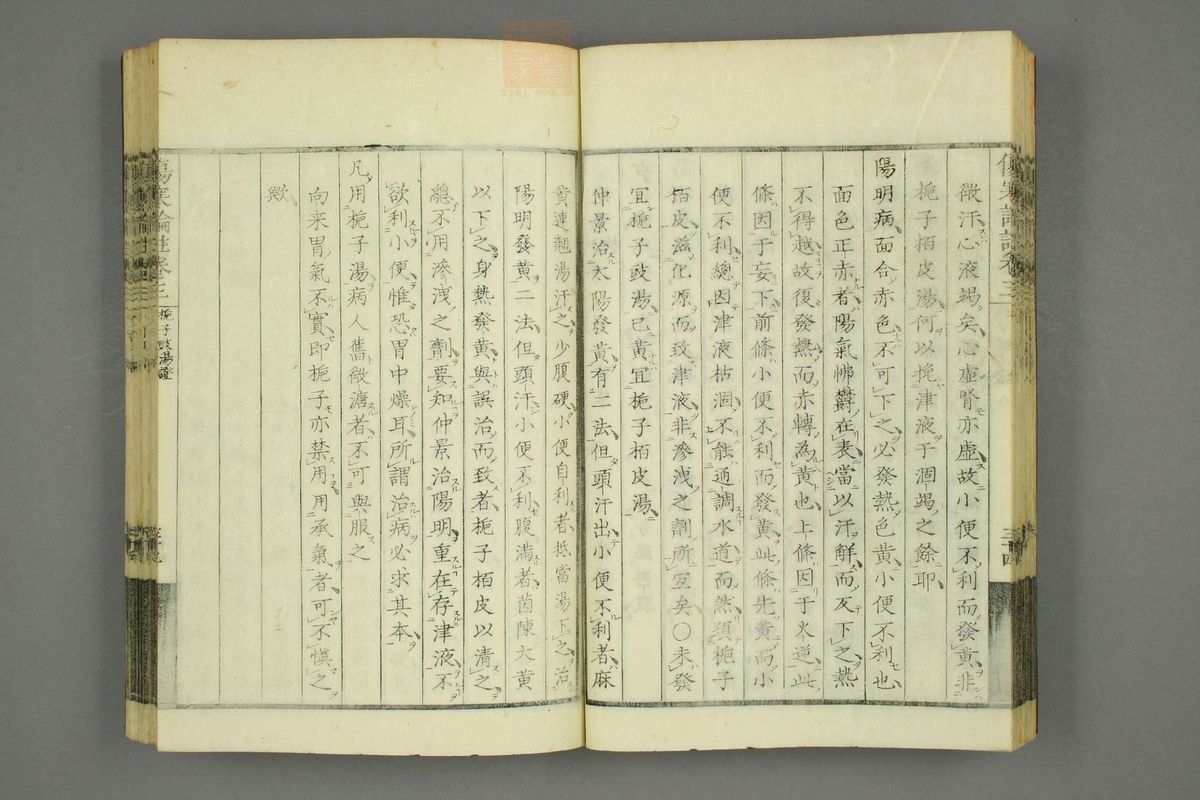 微汗心液竭矣心虛腎亦虛故小便不利而發黃非
梔子柏皮湯何以挽津液于涸竭之餘耶
陽明病面合赤色不可下之必發熱色黃小便不利也
面色正赤者陽氣怫鬱在表當以汗解而反下之熱
不得越故復發熱而赤轉為黃也上條因于火逆此
條因于妄下前條小便不利而發黃此條先黃而小
便不利總因津液枯涸不能通調水道而然須梔子
栢皮滋化源而致津液非滲洩之劑所宜矣〇未發
宜梔子豉湯已黃宜梔子栢皮湯
仲景治太陽發黃有二法但頭汗出小便不利者麻
黃連翹湯汗之少腹硬小便自利者抵當湯下之治
陽明發黃二法但頭汗小便不利腹滿者茵陳大黃
以下之身熱發黃與誤治而致者梔子栢皮以清之
總不用滲洩之劑要知仲景治陽明重在存津液不
欲利小便惟恐胃中燥耳所謂治病必求其本
凡用梔子湯病人舊微溏者不可與服之
向来胃氣不實即梔子亦禁用用承氣者可不慎之
歟
傷寒論註卷三
梔子豉湯證